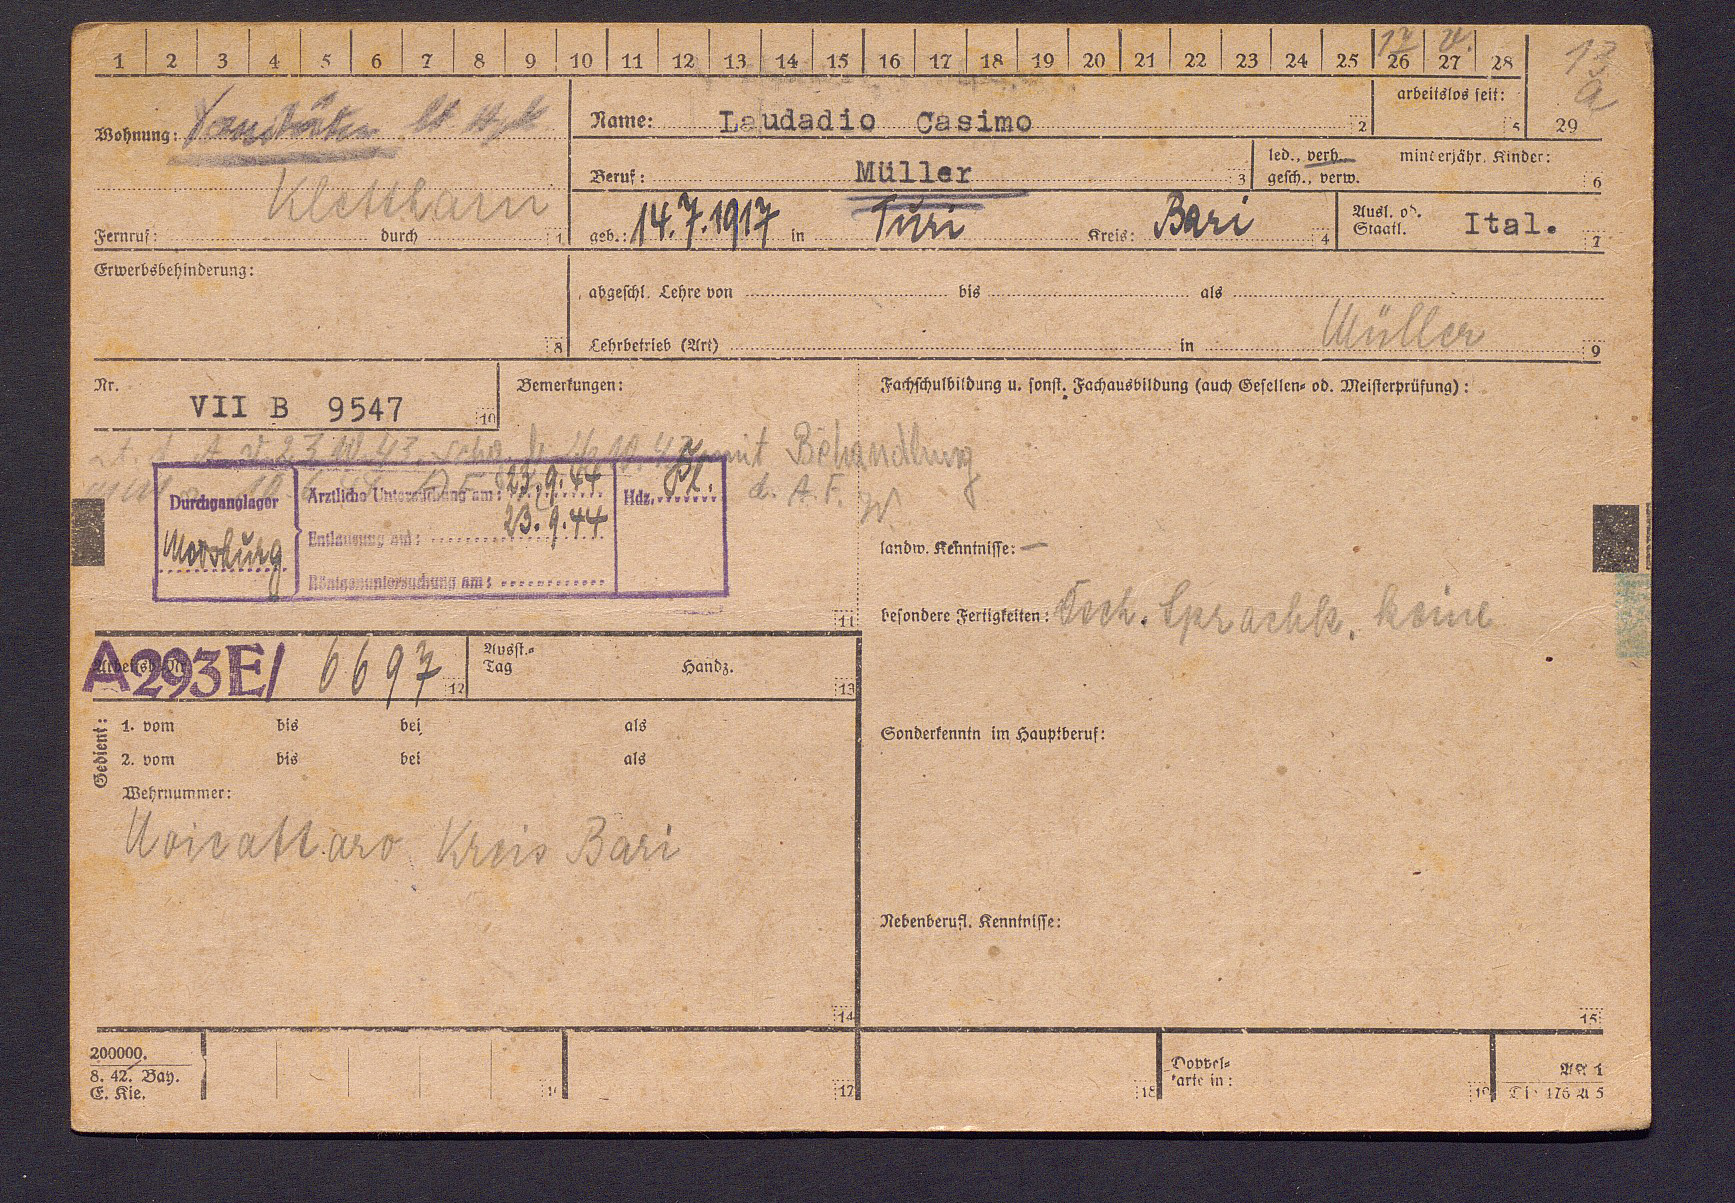 1 2 3 4 5 6 7 8 9 10 11 12 13 14 15 16 17 18 19 20 21 22 23 24 25 26 27 28
17 v. 13 a
arbeitslos seit: 5 29
Wohnung:
Name: Laudadio Casimo 2
Klettham
Beruf: Müller 3
led., verh. minderjähr. Kinder:
gesch., verw. 6
Fernruf: durch 1
geb.: 14.7.1917 in Turi Kreis: Bari 4
Ausl. od. Staatl. Ital. 7
Erwerbsbehinderung: 8
abgeschl. Lehre von bis als
Lehrbetrieb (Art) in Müller 9
Nr. VII B 9547 10
Bemerkungen:
Fachschulbildung u. sonst. Fachausbildung (auch Gesellen- od. Meisterprüfung):
mit Behandlung
d. A. F.
Durchganglager
Moosburg
Ärztliche Untersuchung am: 23.9.44
Entlausung am: 23.9.44
Röntgenuntersuchung am:
Hdz.
11
landw. Kenntnisse: —
besondere Fertigkeiten: Dtsch. Sprachk. keine
Arbeitsb.-Nr. A293E/ 6697 12
Ausst.-Tag Handz. 13
Gedient:
1. vom bis bei als
2. vom bis bei als
Wehrnummer:
Noicattaro Kreis Bari
14
Sonderkenntn im Hauptberuf:
Nebenberufl. Kenntnisse:
15
200000.
8. 42. Bay.
E. Kie.
16 17 18
Doppel-
karte in: 19
AK 1
Din 476 A 5